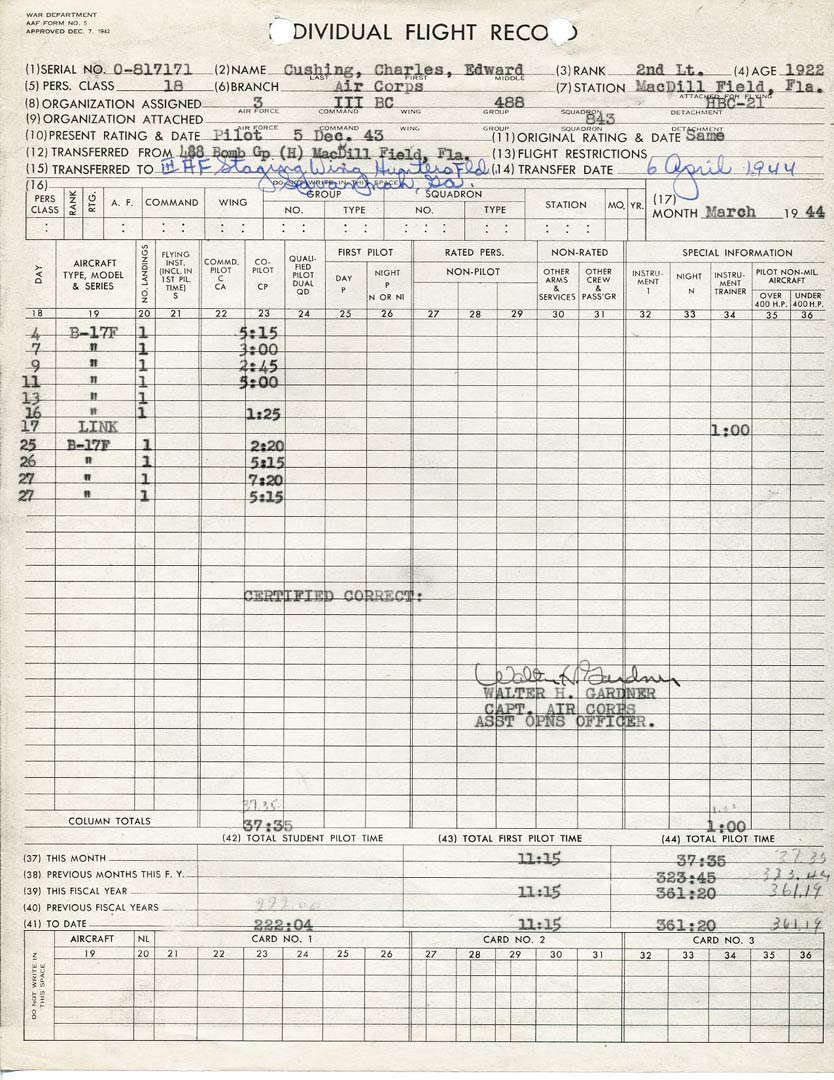 WAR DEPARTMENT
AAF FORM NO. 5
APPROVED DEC. 7, 1942
NDIVIDUAL FLIGHT RECO D
(1) SERIAL NO. O-817171 (2) NAME Cushing, Charles, Edward (3) RANK 2nd Lt. (4) AGE 1922
LAST FIRST MIDDLE
(5) PERS. CLASS 18 (6) BRANCH Air Corps (7) STATION MacDill Field, Fla.
(8) ORGANIZATION ASSIGNED 3 III BC 488 HBC-21
ATTACHED FOR FLYING
AIR FORCE COMMAND WING GROUP SQUADRON DETACHMENT
(9) ORGANIZATION ATTACHED 843
AIR FORCE COMMAND WING GROUP SQUADRON DETACHMENT
(10) PRESENT RATING & DATE Pilot 5 Dec. 43 (11) ORIGINAL RATING & DATE Same
(12) TRANSFERRED FROM 488 Bomb Gp (H) MacDill Field, Fla. (13) FLIGHT RESTRICTIONS
(15) TRANSFERRED TO III AF Staging Wing Hunters Fld. (14) TRANSFER DATE 6 April 1944
Savannah, Ga.
(16) DO NOT WRITE IN THIS SPACE
PERS CLASS RANK RTG. A. F. COMMAND WING GROUP NO. TYPE SQUADRON NO. TYPE STATION MO. YR. (17) MONTH March 1944
DAY AIRCRAFT TYPE, MODEL & SERIES NO. LANDINGS FLYING INST. (INCL. IN 1ST PIL. TIME) S COMMD. PILOT C CA CO-PILOT CP QUALIFIED PILOT DUAL QD FIRST PILOT DAY P NIGHT P N OR NI RATED PERS. NON-PILOT NON-RATED OTHER ARMS & SERVICES OTHER CREW & PASS'GR SPECIAL INFORMATION INSTRUMENT I NIGHT N INSTRUMENT TRAINER PILOT NON-MIL. AIRCRAFT OVER 400 H.P. UNDER 400 H.P.
18 19 20 21 22 23 24 25 26 27 28 29 30 31 32 33 34 35 36
4 B-17F 1 5:15
7 " 1 3:00
9 " 1 2:45
11 " 1 5:00
13 " 1
16 " 1 1:25
17 LINK 1:00
25 B-17F 1 2:20
26 " 1 5:15
27 " 1 7:20
27 " 1 5:15
CERTIFIED CORRECT:
Walter H. Gardner
WALTER H. GARDNER
CAPT. AIR CORPS
ASST OPNS OFFICER.
37.35
COLUMN TOTALS 37:35 1:00
(42) TOTAL STUDENT PILOT TIME (43) TOTAL FIRST PILOT TIME (44) TOTAL PILOT TIME
(37) THIS MONTH 11:15 37:35 37.35
(38) PREVIOUS MONTHS THIS F. Y. 323:45 323.44
(39) THIS FISCAL YEAR 11:15 361:20 361.19
(40) PREVIOUS FISCAL YEARS
(41) TO DATE 222:04 11:15 361:20 361.19
DO NOT WRITE IN THIS SPACE AIRCRAFT NL CARD NO. 1 CARD NO. 2 CARD NO. 3
19 20 21 22 23 24 25 26 27 28 29 30 31 32 33 34 35 36